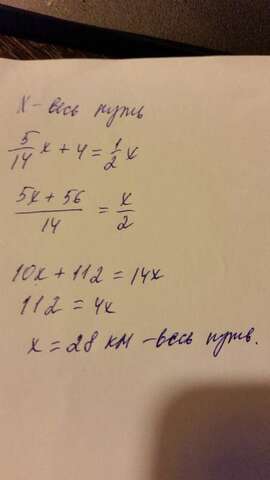 X - весь путь
5/14 x + 4 = 1/2 x
(5x + 56)/14 = x/2
10x + 112 = 14x
112 = 4x
x = 28 км - весь путь.